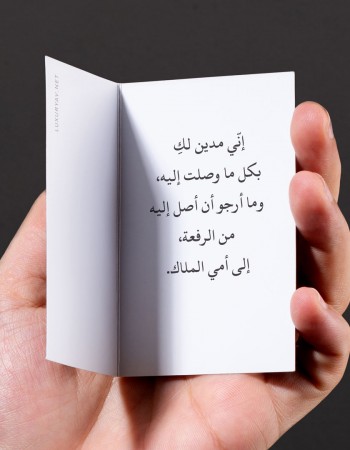 LUXURYAY.NET
إنّي مدين لكِ
بكل ما وصلت إليه،
وما أرجو أن أصل إليه
من الرفعة،
إلى أمي الملاك.